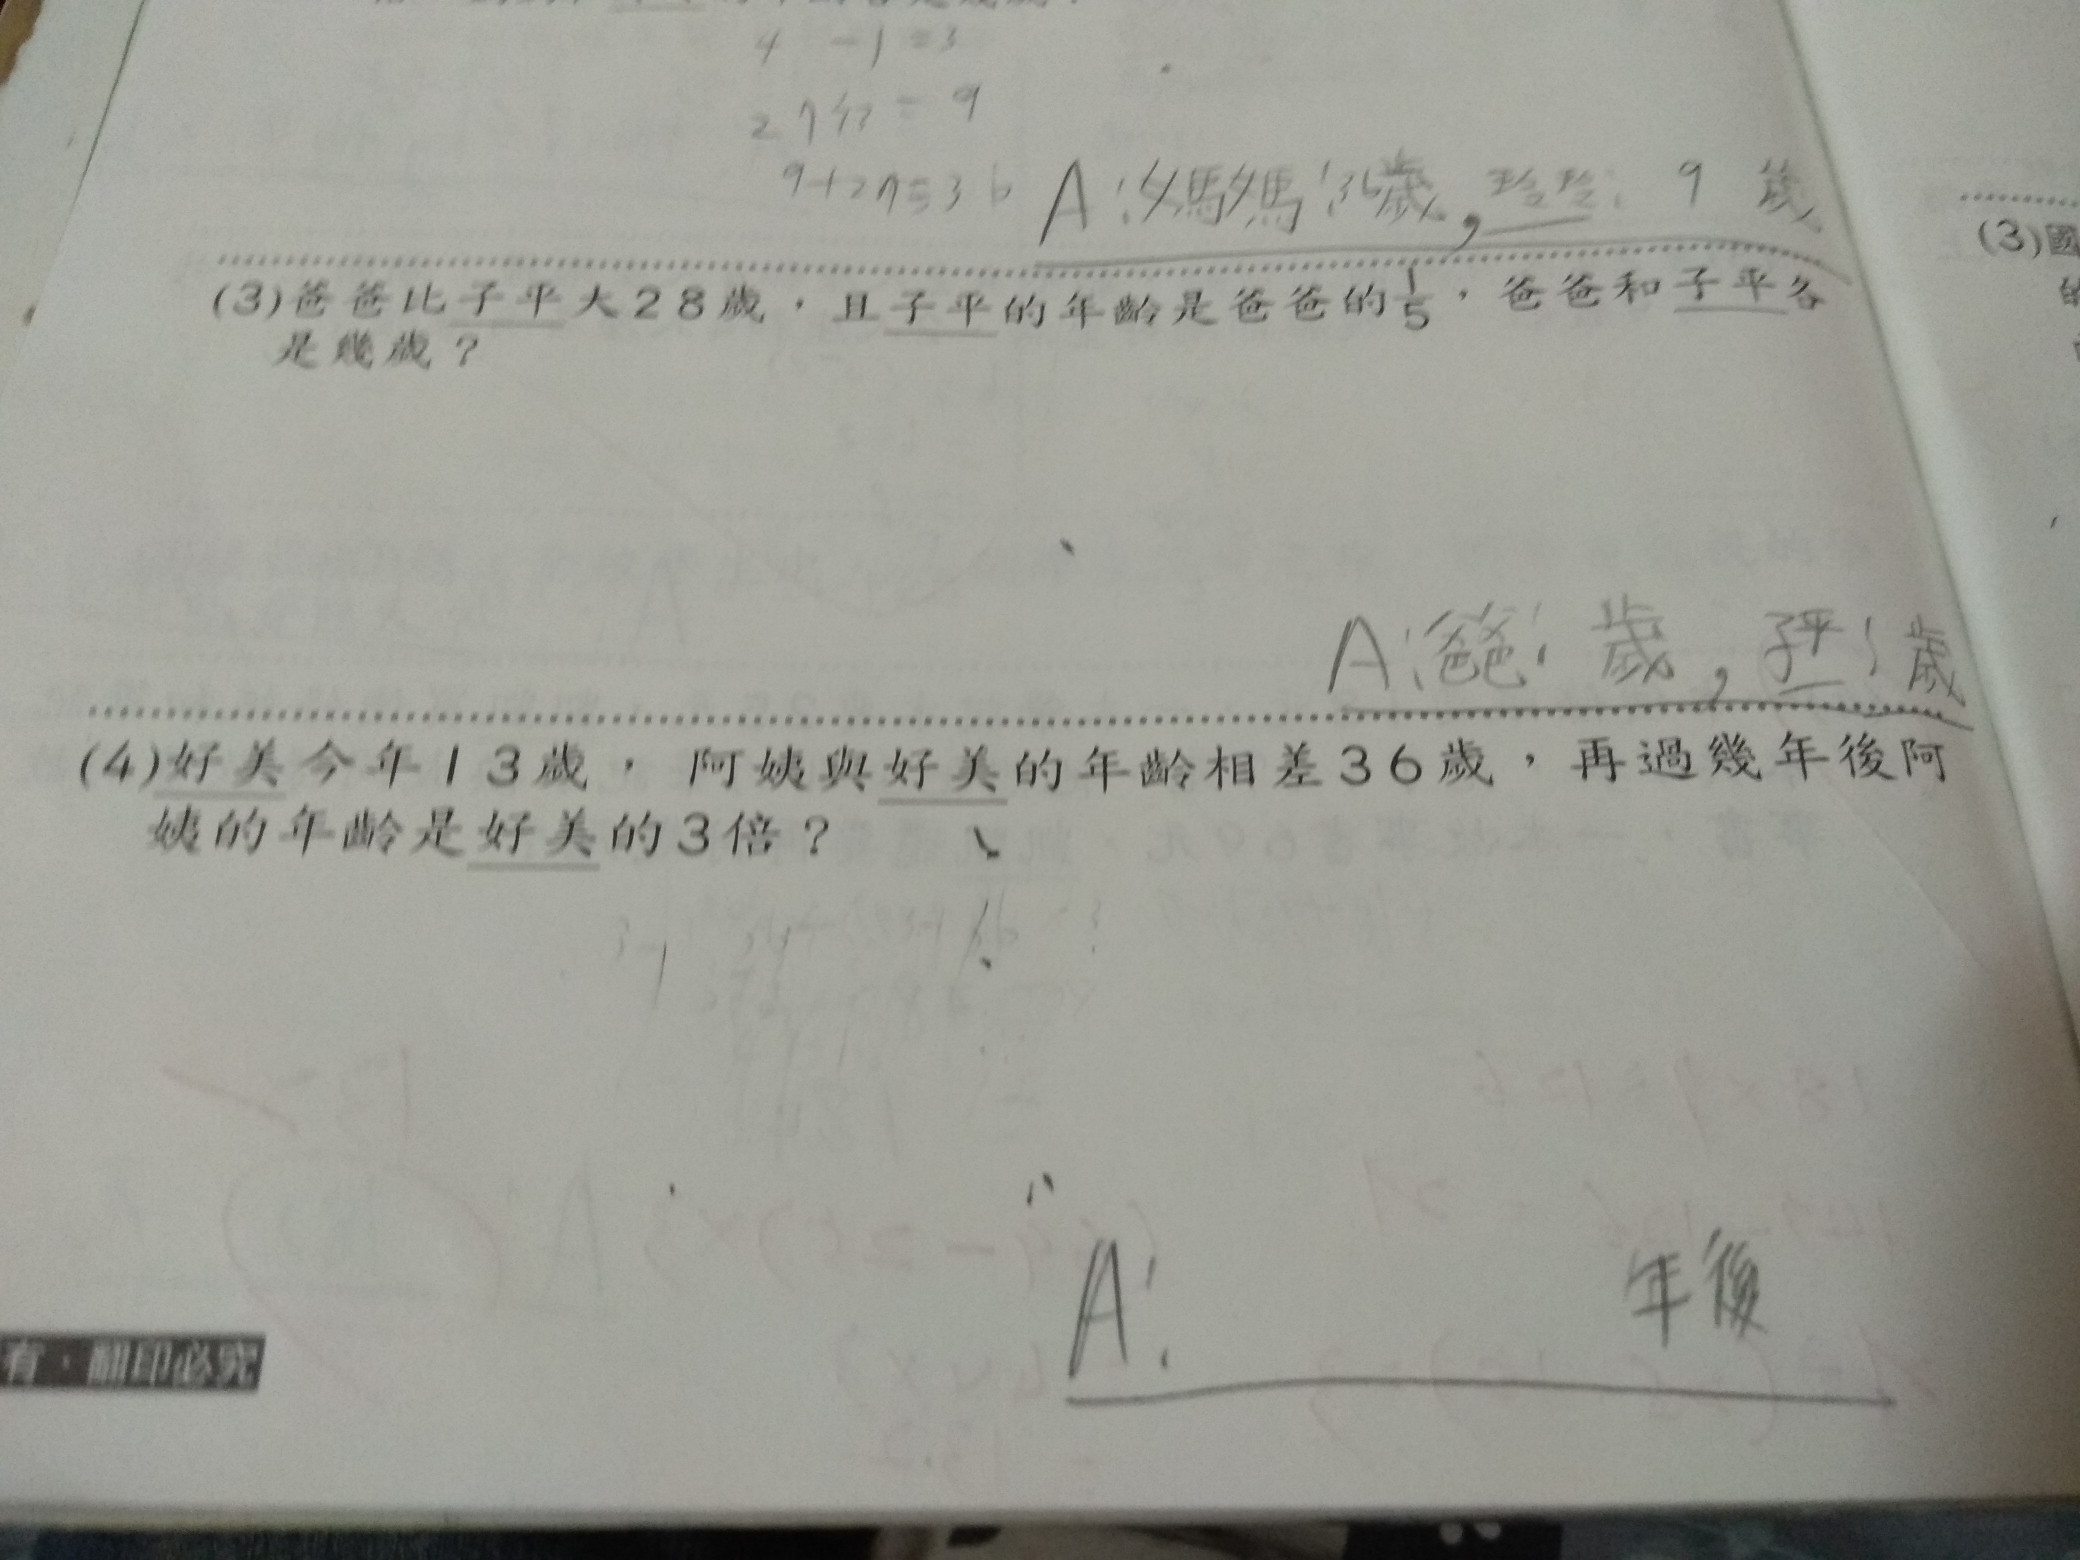 4 - 1 = 3
27÷3 = 9
9+27=36
A:媽媽:36歲,玲玲:9歲
(3)爸爸比子平大28歲,且子平的年齡是爸爸的1/5,爸爸和子平各
是幾歲?
A:爸爸: 歲,子平: 歲
(4)好美今年13歲, 阿姨與好美的年齡相差36歲,再過幾年後阿
姨的年齡是好美的3倍?
3-1
A: 年後
有.翻印必究
(3)國
的